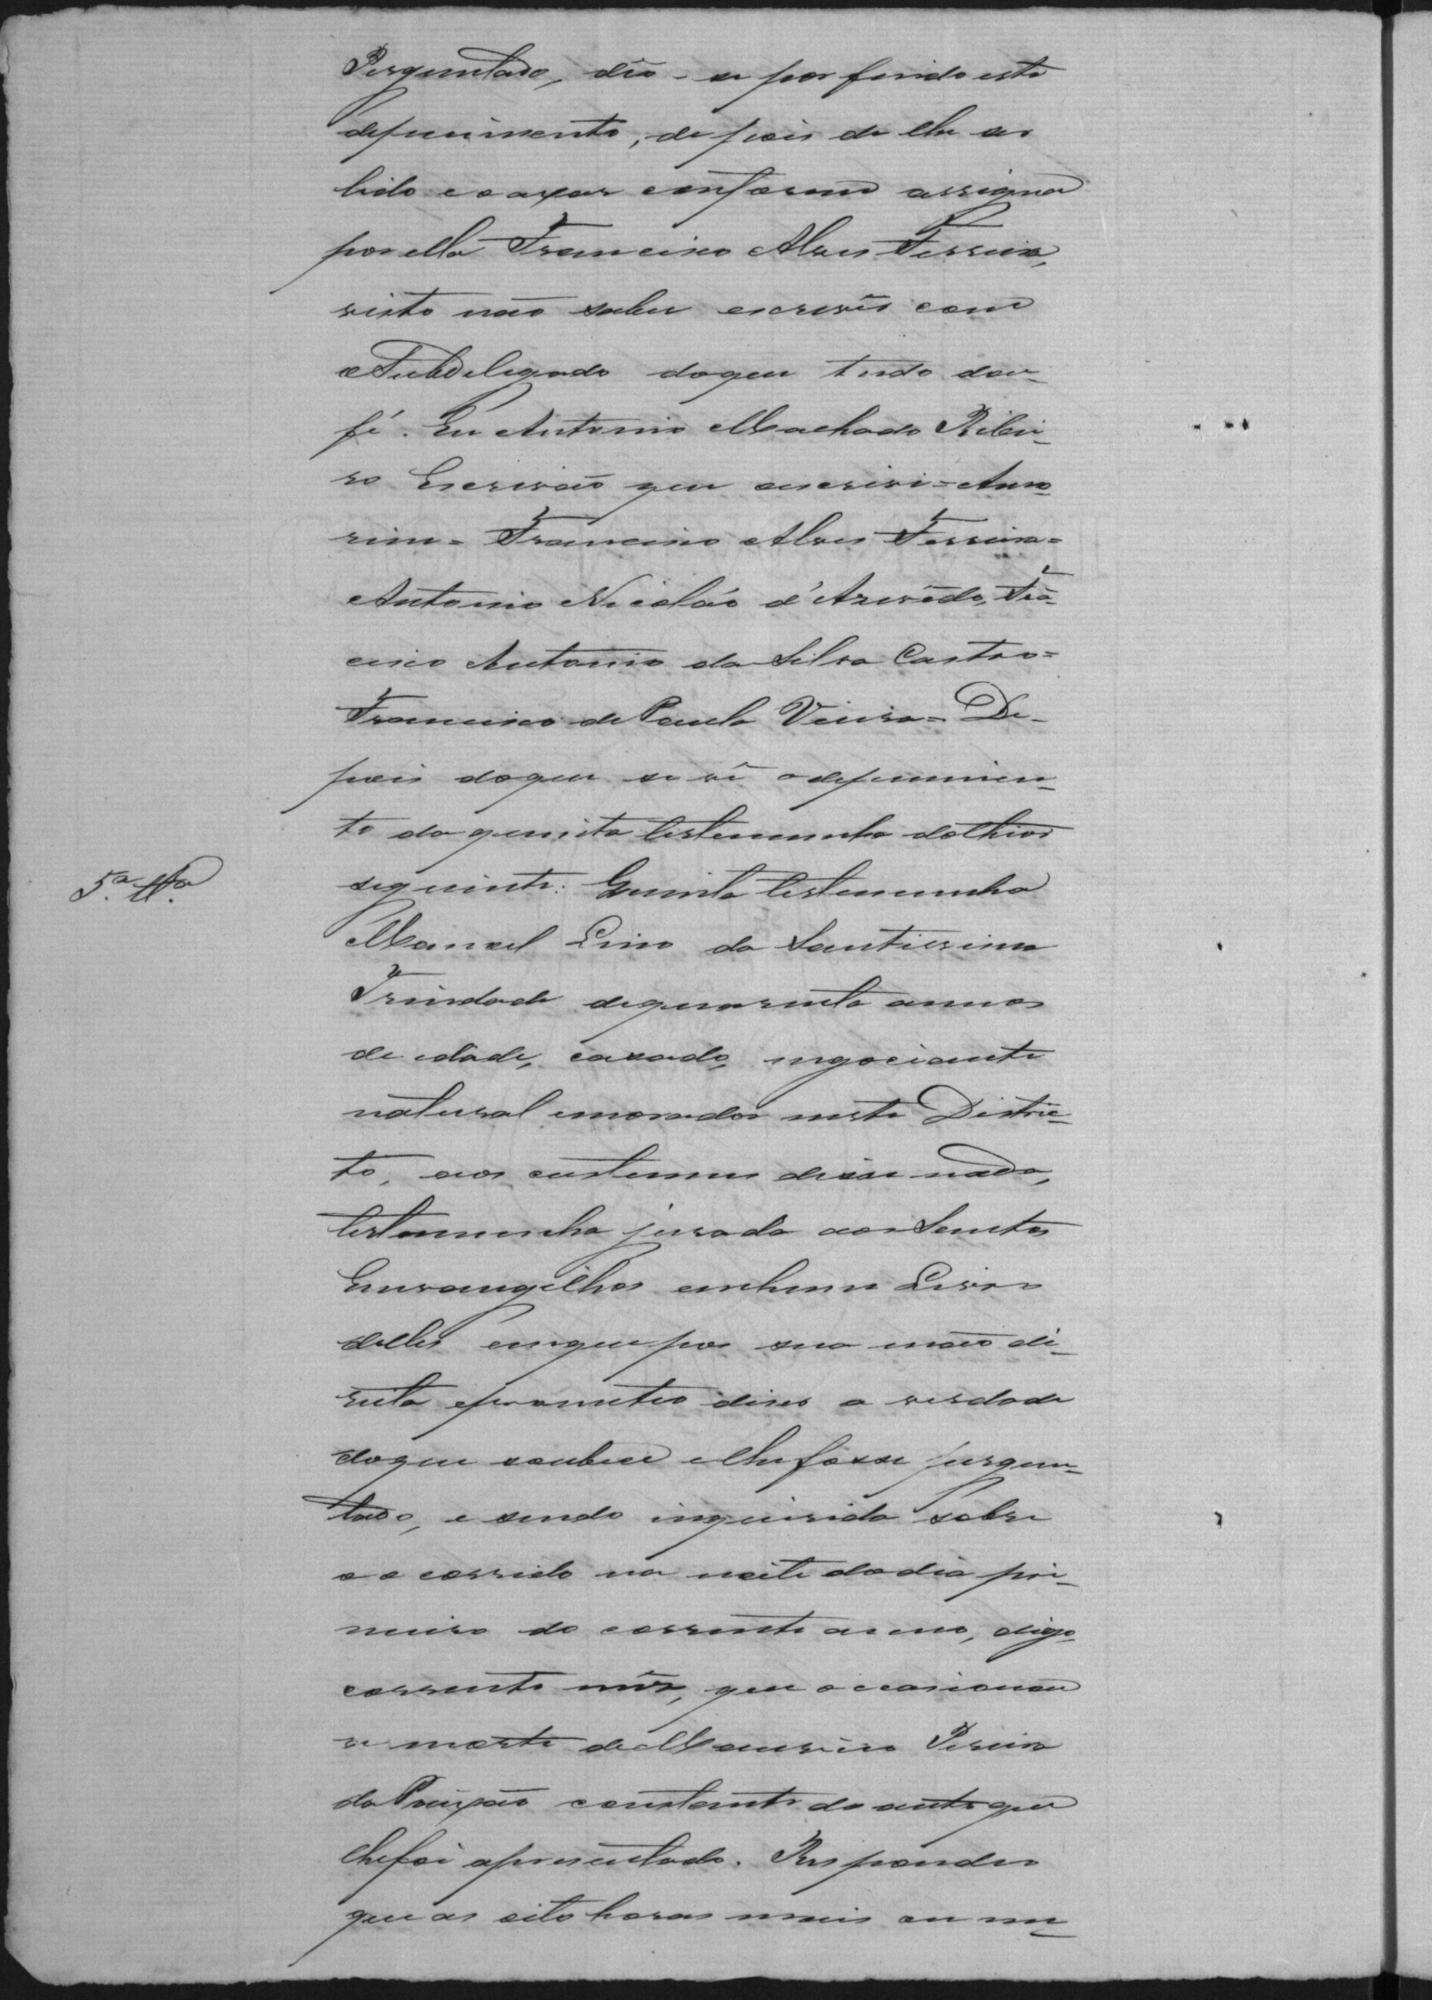 Perguntado, deo-se por findo este
depuimento, depois de lhe ser
lido e o axar conforme assigna
por ella Francisco Alves Ferreira,
visto não saber escrever com
o SubDelegado doque tudo dou
fé. Eu Antonio Machado Ribei-
ro Escrivão que escrivi = Amo-
rim = Francisco Alves Ferreira =
Antonio Nicoláo d'Azevêdo, Frã-
cisco Antonio da Silva Castro =
Francisco de Paula Vieira = De-
pois doque se vê o depuimen-
to da quinta testemunha do theor
5ª. ttª.
seguinte: Quinta testemunha
Manoel Lino da Santissima
Trindade de quarenta annos
de idade, casado, negociante
natural e morador neste Distric-
to, aos custumes disse nada,
testemunha jurada aos Santos
Envangelhos em hum Livro
delles em que pos sua mão di-
reita e prometeo diser a verdade
do que soubece e lhe fosse pergun-
tado, e sendo inquirida sobre
o o corrido na noite do dia pri-
meiro do corrente anno, digo,
corrente mêz, que occasionou
a morte de Mauricio Pereira
da Paixão constante do auto que
lhe foi apresentado. Respondeo
que as oito horas mais ou me-